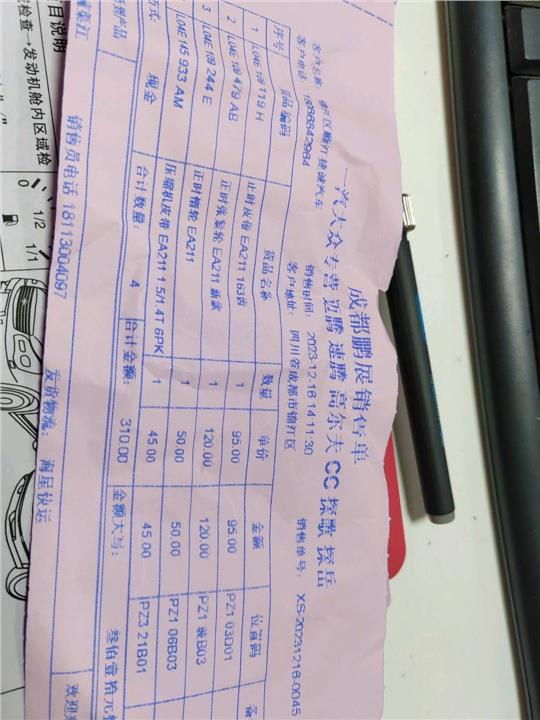 成都鹏展销售单
一汽大众专营 迈腾 速腾 高尔夫 CC 探歌 探岳
销售时间: 2023-12-16 14:11:30
销售单号: XS-20231216-0045
客户地址: 四川省成都市锦江区
序号 货品编码 货品名称 数量 单价 金额 位置码
1 L04E 109 119 H 正时皮带 EA211 163齿 1 95.00 95.00 PZ1 03D01
2 L04E 109 479 AB 正时张紧轮 EA211 新款 1 120.00 120.00 PZ1 B03
3 L04E 109 244 E 正时惰轮 EA211 1 50.00 50.00 PZ1 06B03
L04E 145 933 AM 压缩机皮带 EA211 1.5/1.4T 6PK 1 45.00 45.00 PZ3 21B01
方式: 现金 合计数量: 4 合计金额: 310.00 金额大写: 叁佰壹拾元整
销售员电话 18113004097 发货物流: 海星快运 欢迎
检查→发动机舱内区域检
0 1/2 1/1